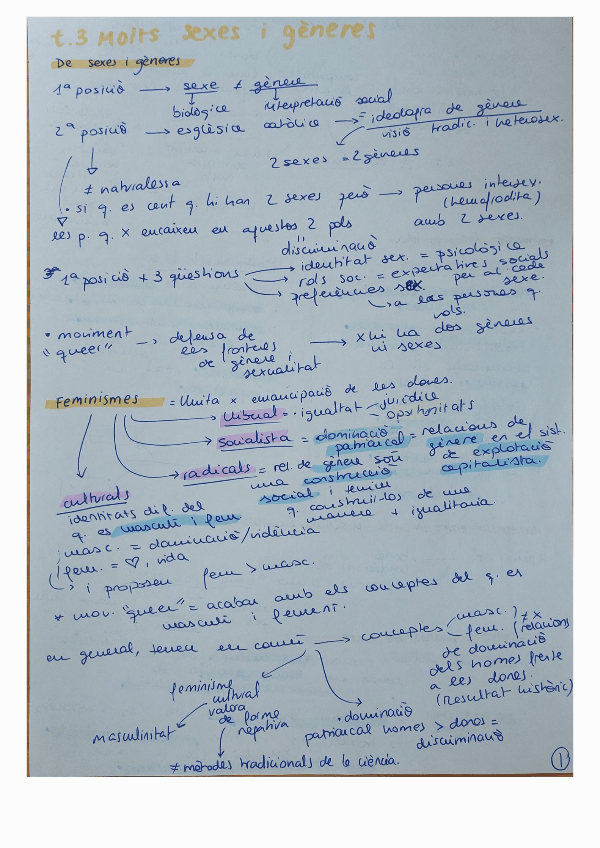 t.3 Molts sexes i gèneres
De sexes i gèneres
1ª posició → sexe ≠ gènere
biològice interpretació social
2ª posició → esglèsice catòlice → = ideologia de gènere
visió tradic. i heterosex.
2 sexes = 2 gèneres
≠ naturalessa
• si q. es cert q. hi han 2 sexes però → persones intersex.
(hemafrodita)
les p. q. x encaixen en aquestos 2 pols amb 2 sexes.
discriminació
1ª posició + 3 qüestions → identitat sex. = psicològice
rols soc. = expectatives socials
per al cada
sexe.
preferències sex.
→ a les persones q.
vols.
• moviment
"queer" → defensa de
les fronteres
de gènere i
sexualitat → x hi ha dos gèneres
ni sexes
Feminismes = lluita x emancipació de les dones.
lliberal = • igualtat - jurídice
- oportunitats
socialista = dominació
patriarcal = relacions de
gènere en el sist.
de explotació
capitalista.
radicals = rel. de gènere són
una construcció
social i tenim
q. construir-los de una
manera + igualitaria.
culturals
identitats dif. del
q. es masculí i fem.
masc. = dominació/violència
fem. = ♡, vida
→ i proposen fem > masc.
* mov. "queer" = acabar amb els conceptes del q. es
masculí i femení.
en general, tenen en comú → conceptes masc.
fem. ≠ x
(relacions
de dominació
dels homes frense
a les dones.
(resultat històric)
feminisme
cultural
valora
de forme
negativa
masculinitat
• dominació
patriarcal homes > dones =
discriminació
≠ mètodes tradicionals de la ciència.
1